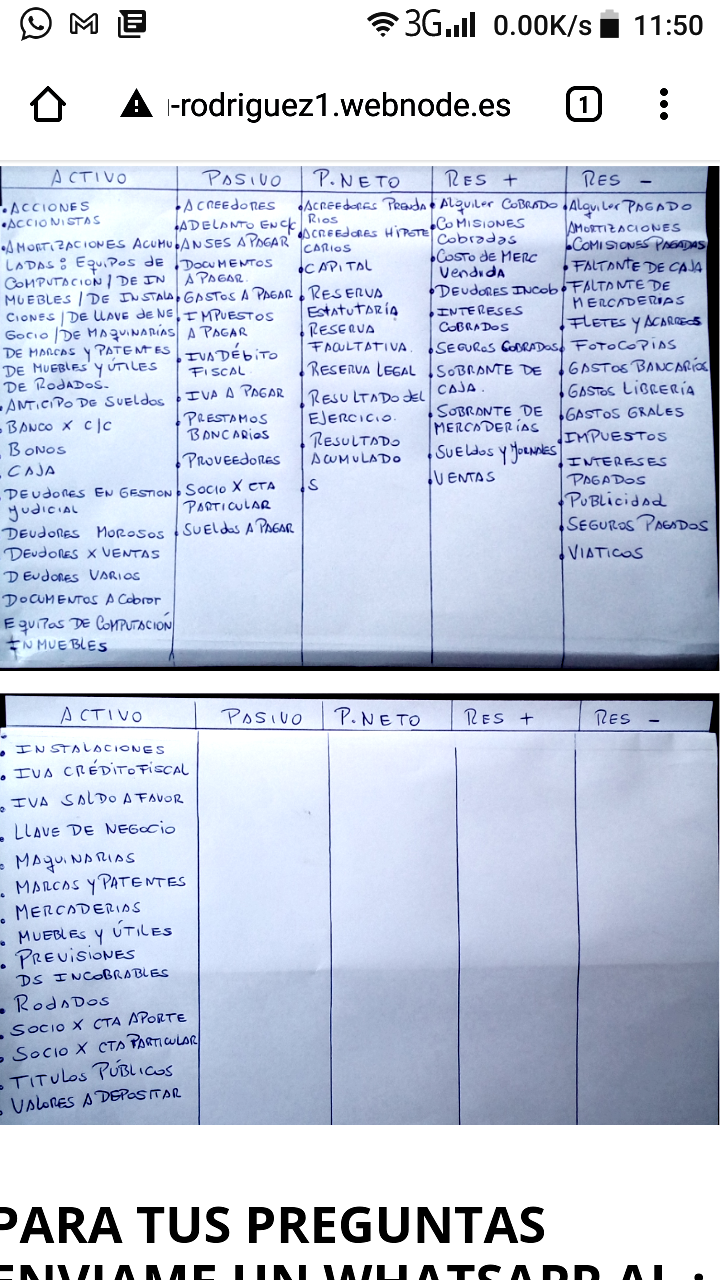 3G 0.00K/s 11:50
-rodriguez1.webnode.es 1
ACTIVO
.ACCIONES
.ACCIONISTAS
.AMORTIZACIONES ACUMU
LADAS: EQUIPOS DE
COMPUTACION / DE IN
MUEBLES / DE INSTALA
CIONES / DE LLAVE DE NE
GOCIO / DE MAQUINARIAS
DE MARCAS Y PATENTES
DE MUEBLES Y ÚTILES
DE RODADOS.
.ANTICIPO DE SUELDOS
BANCO X C/C
BONOS
CAJA
DEUDORES EN GESTION
JUDICIAL
DEUDORES MOROSOS
DEUDORES X VENTAS
DEUDORES VARIOS
DOCUMENTOS A COBRAR
EQUIPOS DE COMPUTACIÓN
INMUEBLES
PASIVO
.ACREEDORES
.ADELANTO EN C/C
.ANSES A PAGAR
.DOCUMENTOS
A PAGAR.
.GASTOS A PAGAR
.IMPUESTOS
A PAGAR
.IVA DÉBITO
FISCAL
.IVA A PAGAR
.PRESTAMOS
BANCARIOS
.PROVEEDORES
.SOCIO X CTA
PARTICULAR
.SUELDOS A PAGAR
P.NETO
.ACREEDORES PRENDA
RIOS
.ACREEDORES HIPOTE
CARIOS
.CAPITAL
.RESERVA
ESTATUTARÍA
.RESERVA
FACULTATIVA.
.RESERVA LEGAL
.RESULTADO DEL
EJERCICIO.
.RESULTADO
ACUMULADO
.S
RES +
.Alquiler COBRADO
.COMISIONES
Cobradas
.COSTO DE MERC
Vendida
.DEUDORES INCOB
.INTERESES
COBRADOS
.SEGUROS COBRADOS
.SOBRANTE DE
CAJA.
.SOBRANTE DE
MERCADERÍAS
.SUELDOS Y JORNALES
.VENTAS
RES -
.Alquiler PAGADO
AMORTIZACIONES
.COMISIONES PAGADAS
.FALTANTE DE CAJA
.FALTANTE DE
MERCADERIAS
.FLETES Y ACARREOS
.FOTOCOPIAS
.GASTOS BANCARIOS
.GASTOS LIBRERÍA
.GASTOS GRALES
.IMPUESTOS
.INTERESES
PAGADOS
.PUBLICIDAD
.SEGUROS PAGADOS
.VIATICOS
ACTIVO PASIVO P.NETO RES + RES -
. INSTALACIONES
. IVA CRÉDITO FISCAL
. IVA SALDO A FAVOR
. LLAVE DE NEGOCIO
. MAQUINARIAS
. MARCAS Y PATENTES
. MERCADERIAS
. MUEBLES Y ÚTILES
. PREVISIONES
DS INCOBRABLES
. RODADOS
. SOCIO X CTA APORTE
. SOCIO X CTA PARTICULAR
. TITULOS PÚBLICOS
. VALORES A DEPOSITAR
PARA TUS PREGUNTAS
ENVIAME UN WHATSAPP AL :